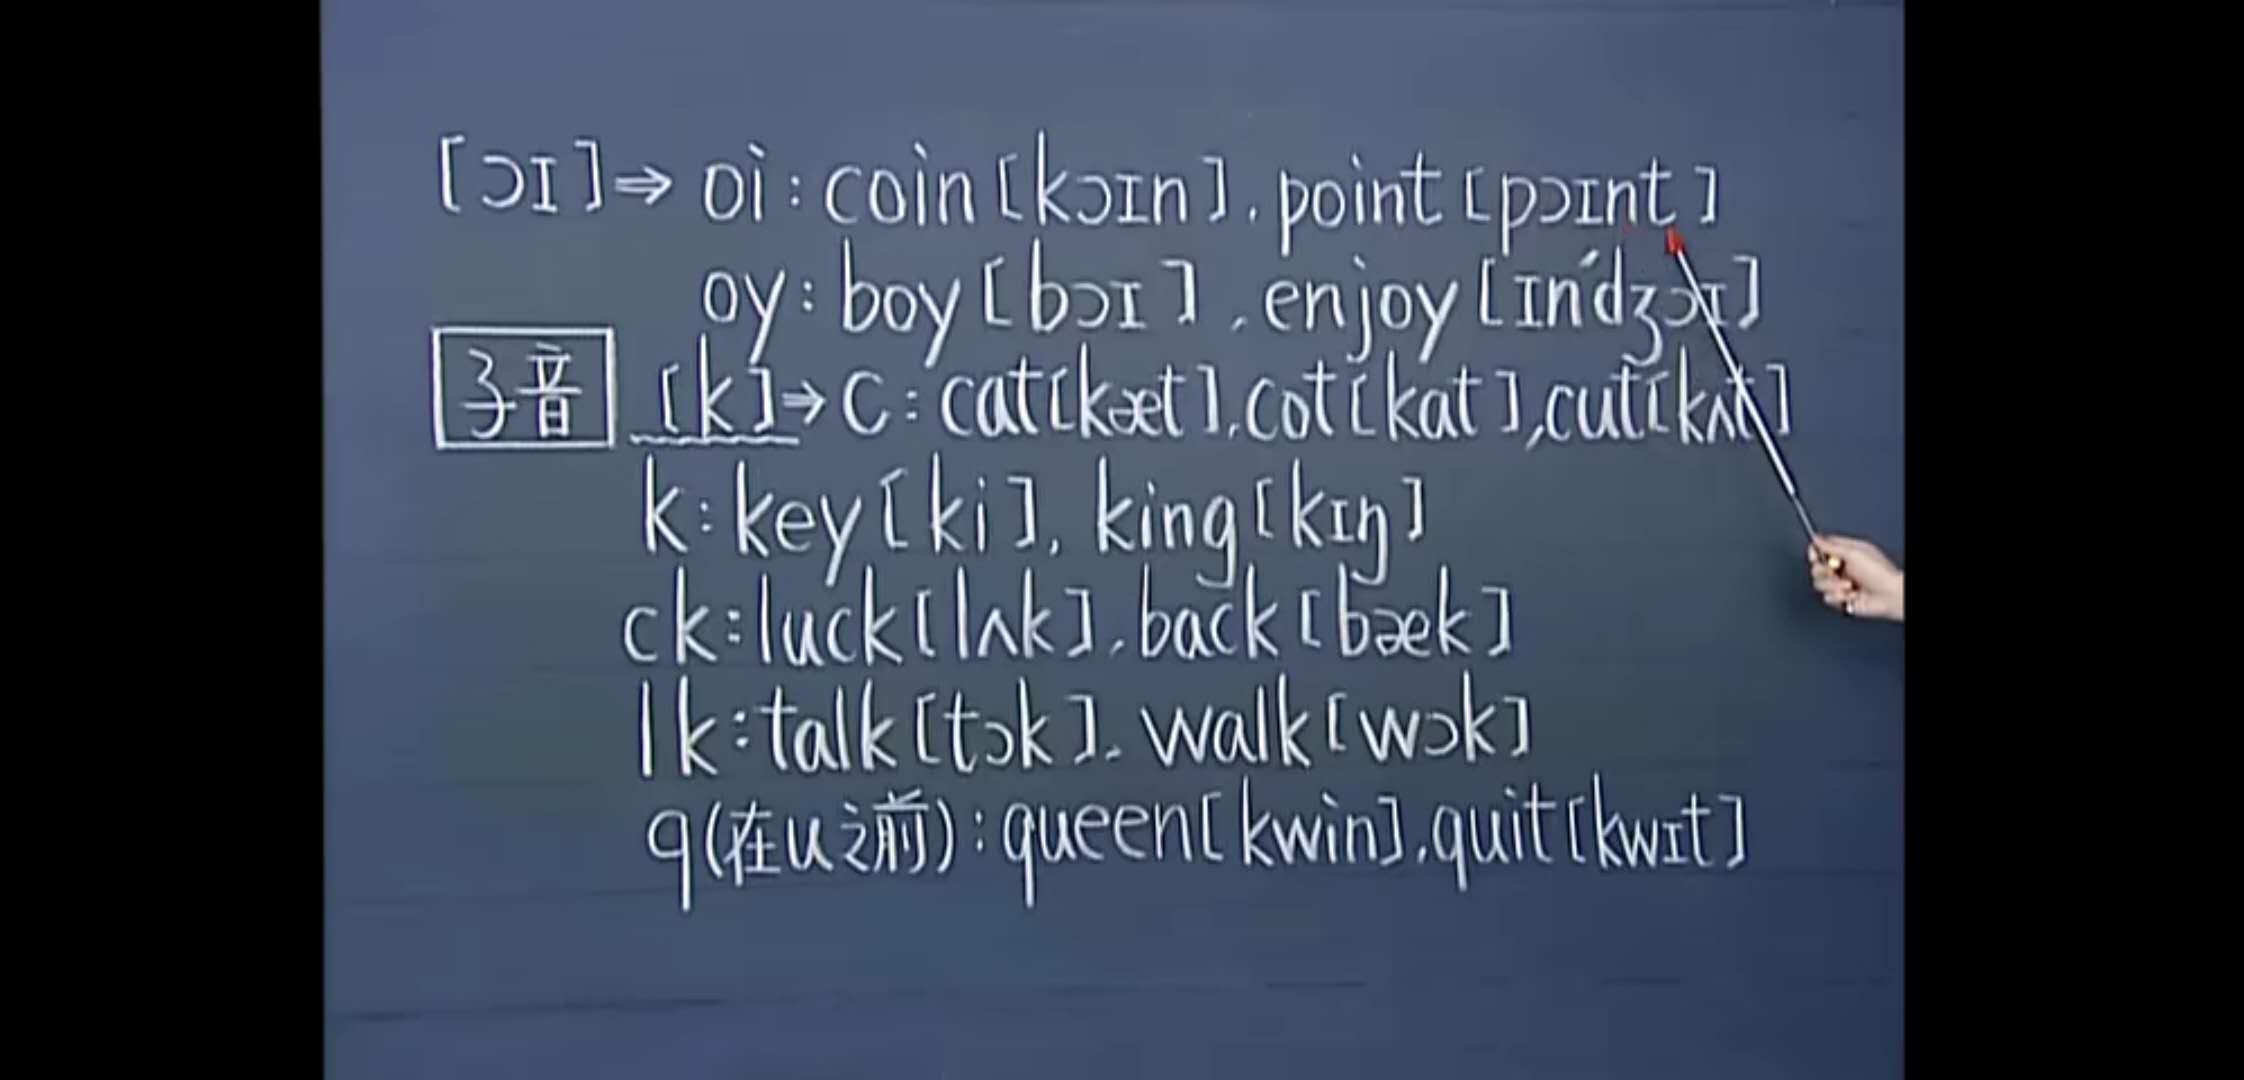 [ɔɪ]⇒ oi: coin[kɔɪn], point[pɔɪnt]
oy: boy[bɔɪ], enjoy[ɪn'dʒɔɪ]
子音 [k]⇒ c: cat[kæt], cot[kat], cut[kʌt]
k: key[ki], king[kɪŋ]
ck: luck[lʌk], back[bæk]
lk: talk[tɔk], walk[wɔk]
q(在u之前): queen[kwin], quit[kwɪt]